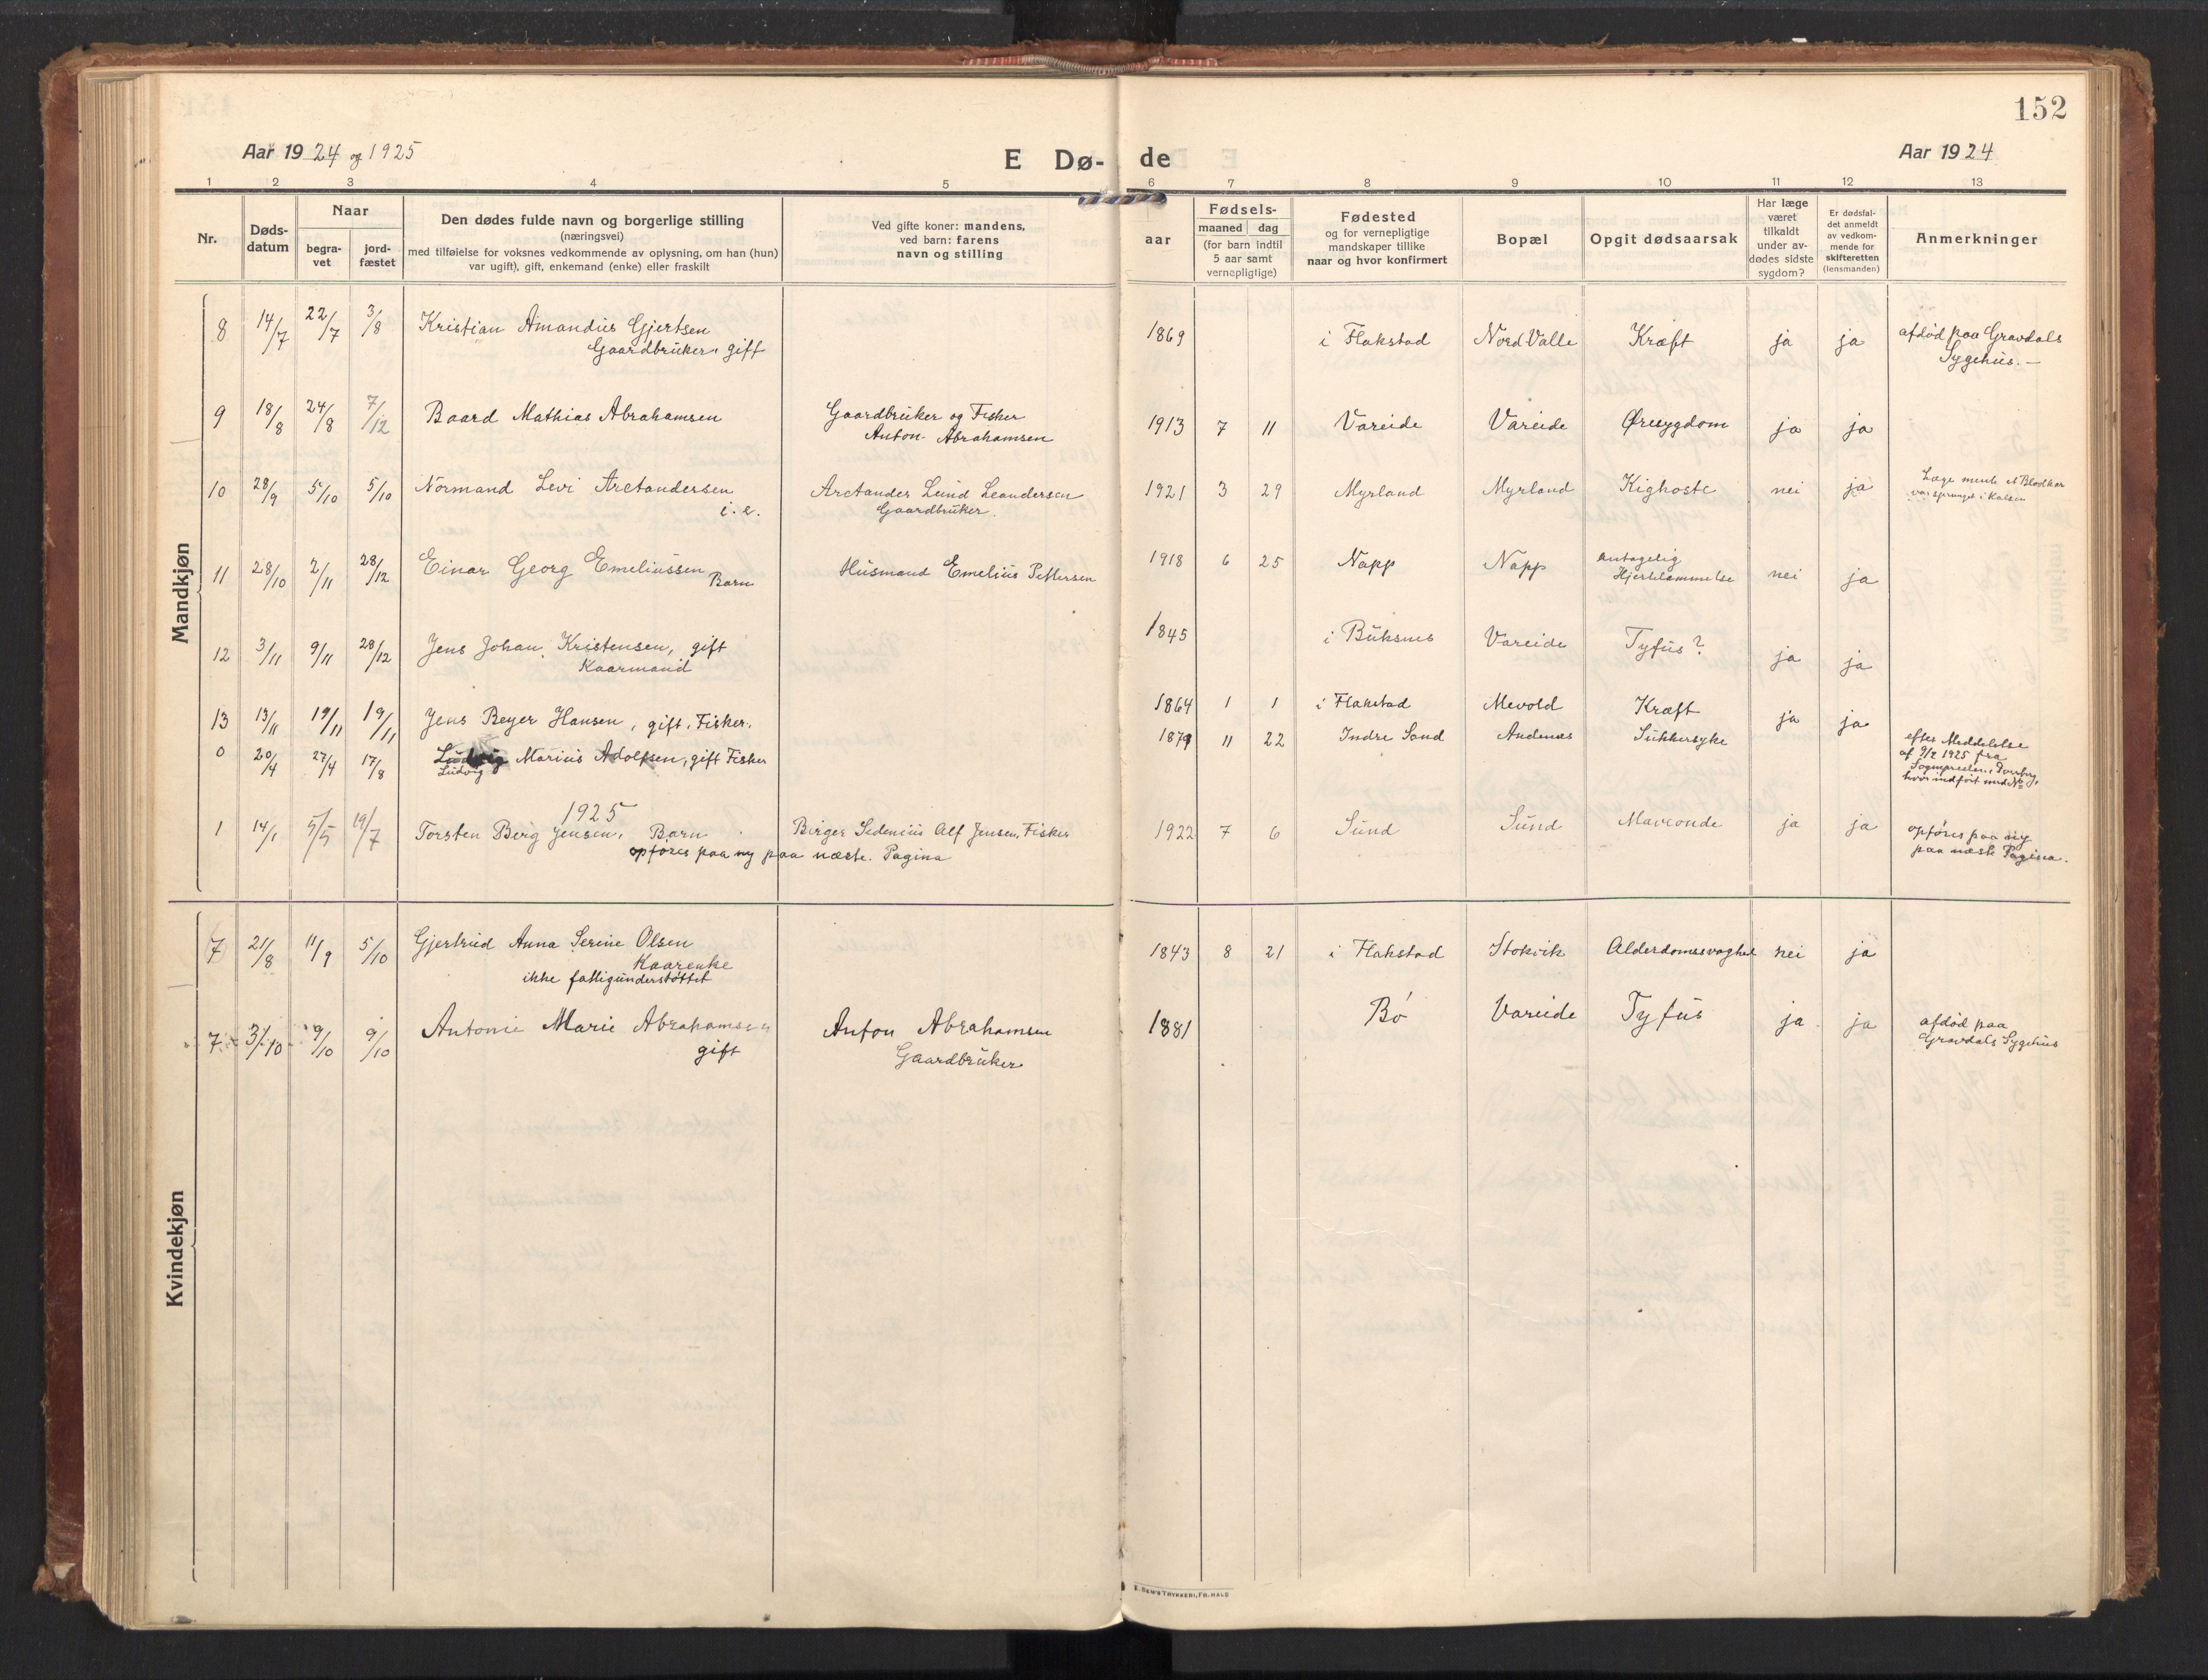 152
Aar 1924 og 1925
E Dø-
de
Aar 1924
1 2 3 4 5 6 7 8 9 10 11 12 13
Nr.
Døds-
datum
Naar
begra-
vet
jord-
fæstet
Den dødes fulde navn og borgerlige stilling
(næringsvei)
med tilføielse for voksnes vedkommende av oplysning, om han (hun)
var ugift), gift, enkemand (enke) eller fraskilt
Ved gifte koner: mandens,
ved barn: farens
navn og stilling
aar
Fødsels-
maaned dag
(for barn indtil
5 aar samt
vernepligtige)
Fødested
og for vernepligtige
mandskaper tillike
naar og hvor konfirmert
Bopæl
Opgit dødsaarsak
Har læge
været
tilkaldt
under av-
dødes sidste
sygdom?
Er dødsfal-
det anmeldt
av vedkom-
mende for
skifteretten
(lensmanden)
Anmerkninger
Mandkjøn
8 14/7 22/7 3/8 Kristian Amandus Gjertsen 1869 i Flakstad Nord Valle Kræft ja ja afdød paa Gravdals
Gaardbruker, gift Sygehus. –
9 18/8 24/8 7/12 Baard Mathias Abrahamsen Gaardbruker og Fisker 1913 7 11 Vareide Vareide Øresygdom ja ja
Anton Abrahamsen
10 28/9 5/10 5/10 Normand Levi Arctandersen Arctander Lund Leandersen 1921 3 29 Myrland Myrland Kighoste nei ja Læge mente et Blodkar
i. e. Gaardbruker. var sprunget i Halsen
11 28/10 2/11 28/12 Einar Georg Emeliussen Husmand Emelius Pettersen 1918 6 25 Napp Napp antagelig nei ja
Barn Hjertelammelse
12 3/11 9/11 28/12 Jens Johan Kristensen, gift 1845 i Buksnes Vareide Tyfus? ja ja
Kaarmand
13 13/11 19/11 19/11 Jens Beyer Hansen, gift, Fisker. 1864 1 1 i Flakstad Mevold Kræft ja ja
0 20/4 27/4 17/8 Ludvig Marius Adolfsen, gift Fisker 1879 11 22 Indre Sand Andenes Sukkersyke efter Meddelelse
Ludvig af 9/2 1925 fra
Sognepresten i
hvor indført under No
1925
1 14/1 5/5 19/7 Torsten Berg Jensen, Barn Birger Sedenius Alf Jensen, Fisker 1922 7 6 Sund Sund Maveonde ja ja opføres paa ny
opføres paa ny paa næste Pagina paa næste Pagina.
Kvindekjøn
7 21/8 11/9 5/10 Gjertrud Anna Serine Olsen 1843 8 21 i Flakstad Stokvik Alderdomssvaghed nei ja
Kaarenke
ikke fattigunderstøttet
7 3/10 9/10 9/10 Antonie Marie Abrahamsen Anton Abrahamsen 1881 Bø Vareide Tyfus ja ja afdød paa
gift Gaardbruker Gravdals Sygehus